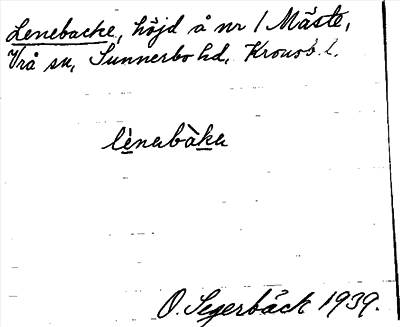 Lenebacke, höjd å nr 1 Mäste,
Vrå sn, Sunnerbo hd, Kronob. l.
lènabàka
O. Segerbäck 1939.